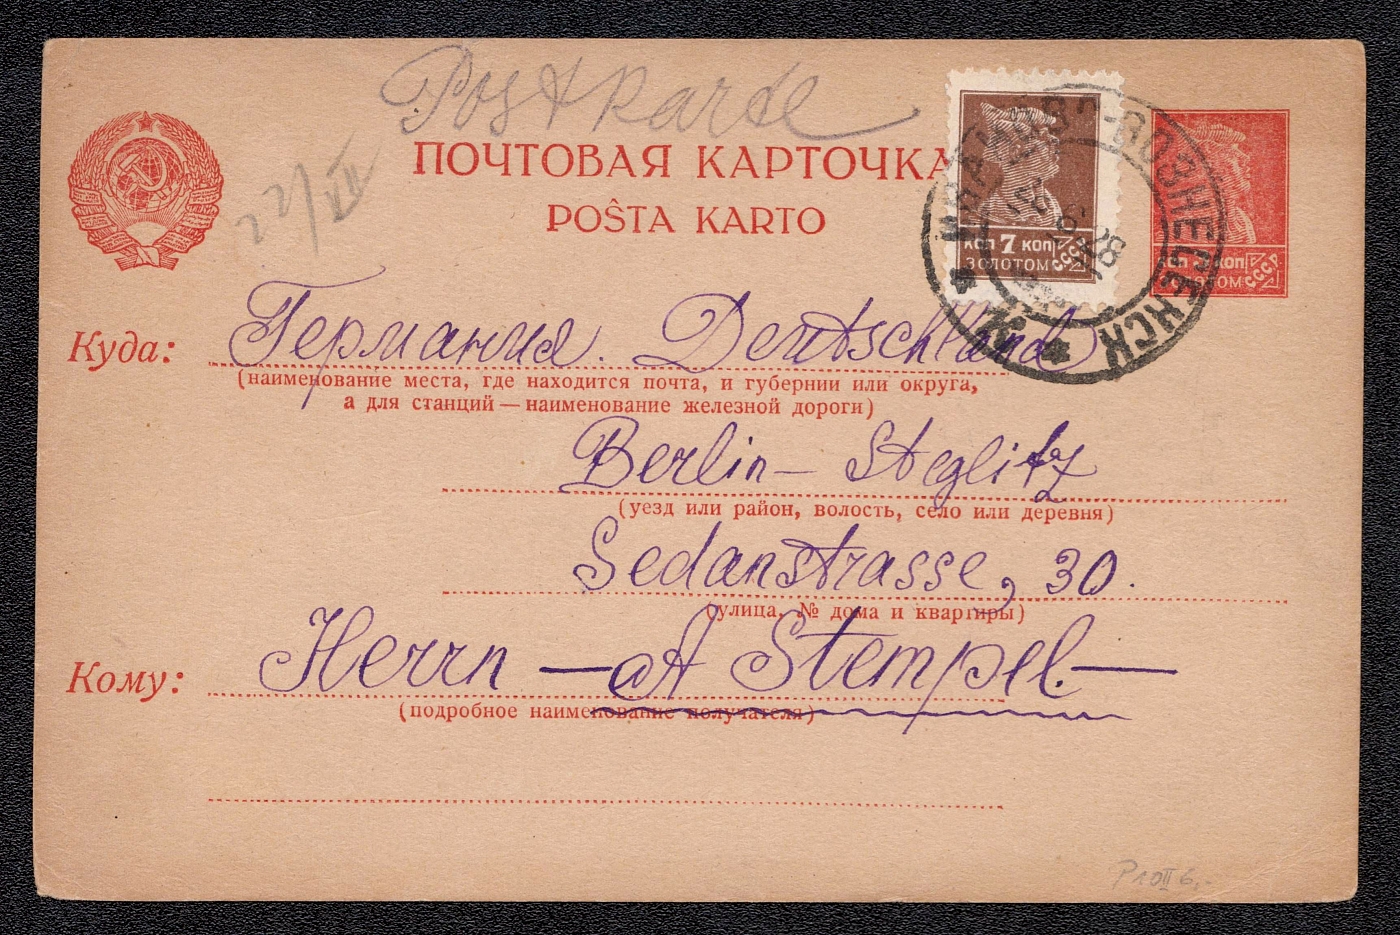 Postkarte
ПОЧТОВАЯ КАРТОЧКА
POŜTA KARTO
КОП 7 КОП
ЗОЛОТОМ СССР
КОП КОП
СССР
ИВАНОВО-ВОЗНЕСЕНСК
6 28
Куда: Германия. Deutschland
(наименование места, где находится почта, и губернии или округа,
а для станций — наименование железной дороги)
Berlin – Steglitz
(уезд или район, волость, село или деревня)
Sedanstrasse, 30.
(улица, № дома и квартиры)
Кому: Herrn — A Stempel. —
(подробное наименование получателя)